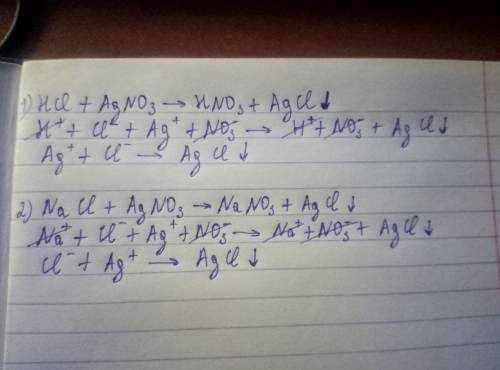 1) HCl + AgNO₃ → HNO₃ + AgCl↓
H⁺ + Cl⁻ + Ag⁺ + NO₃⁻ → H⁺ + NO₃⁻ + AgCl↓
Ag⁺ + Cl⁻ → AgCl↓
2) NaCl + AgNO₃ → NaNO₃ + AgCl↓
Na⁺ + Cl⁻ + Ag⁺ + NO₃⁻ → Na⁺ + NO₃⁻ + AgCl↓
Cl⁻ + Ag⁺ → AgCl↓